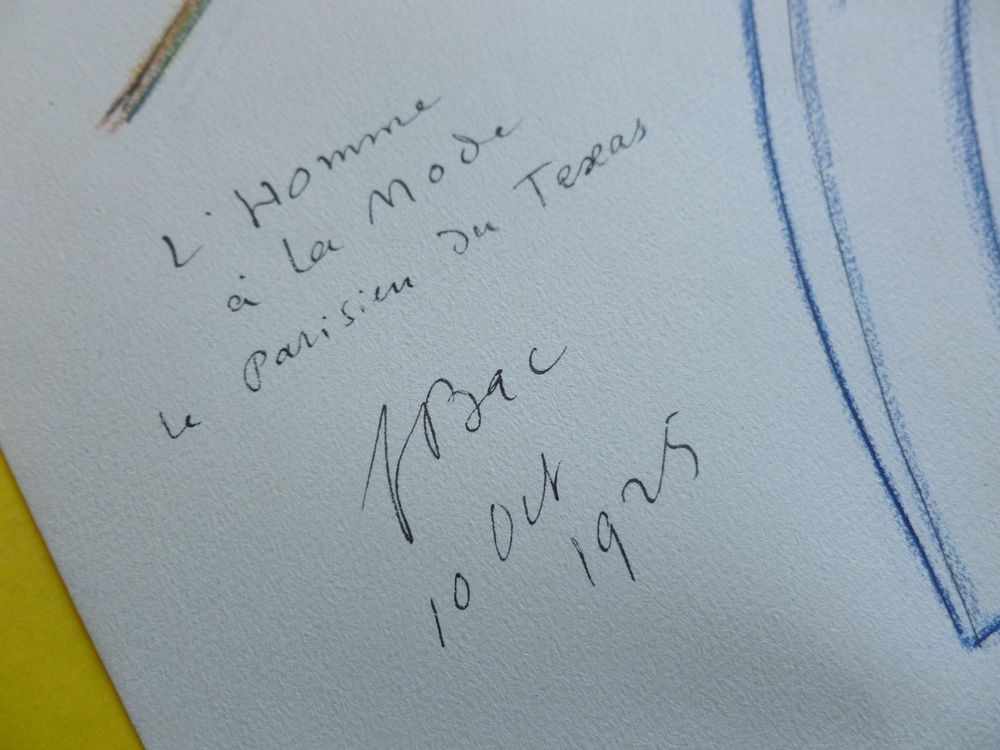 L'Homme
à La Mode
le Parisien du Texas
Bac
10 Oct
1925